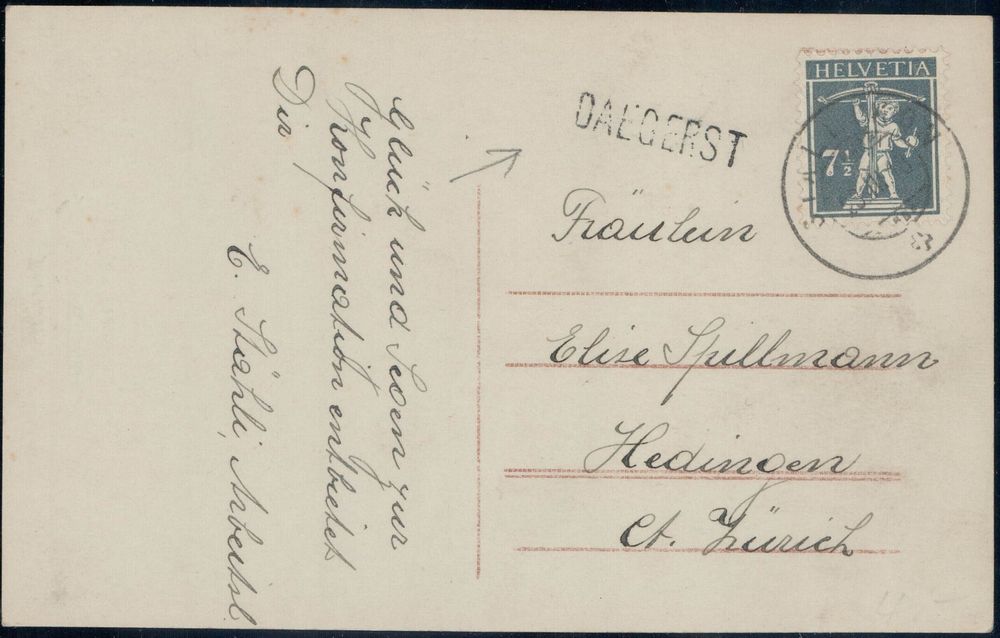 Glück und Segen zur
Konfirmation entbietet
Dir
E. Stähli, Arbeitsl.
DAEGERST
HELVETIA
7 1/2
Fräulein
Elise Spillmann
Hedingen
Ct. Zürich